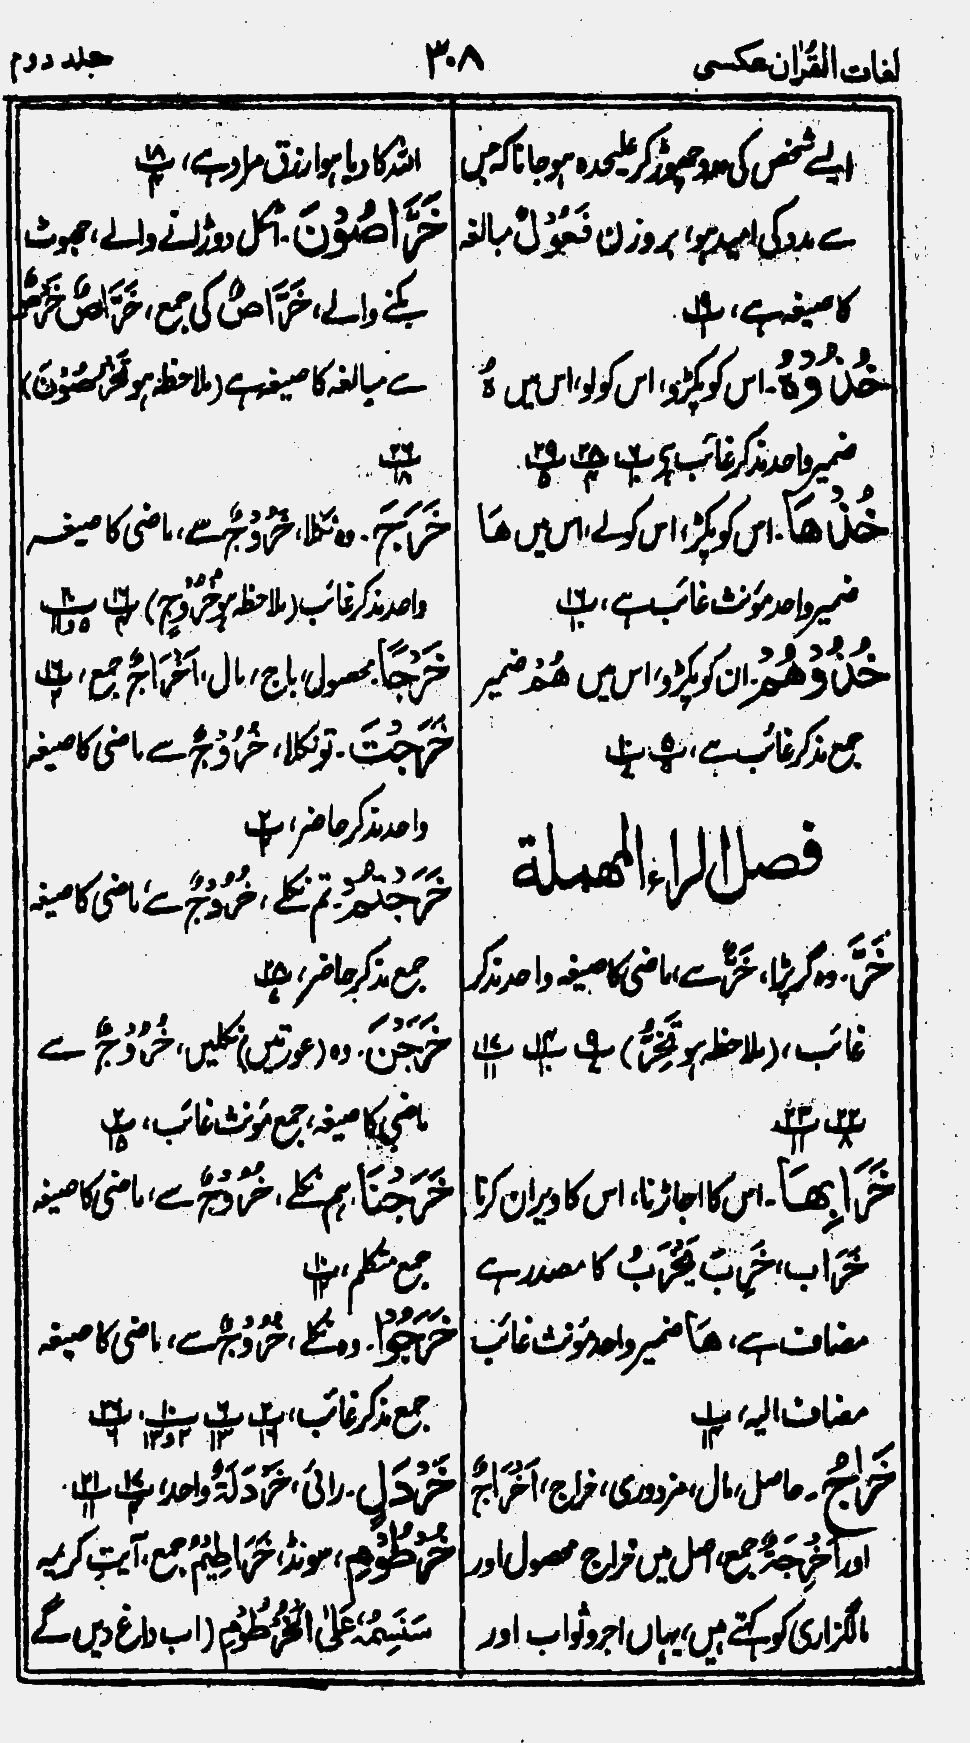 لغات القرآن عکسی
۳۰۸
جلد دوم
ایسے شخص کی مدد چھوڑ کر علیحدہ ہو جانا کہ جس
سے مدد کی امید ہو، بر وزن فَعُوْلٌ مبالغہ
کا صیغہ ہے، پ ۱۹
خُذُوْہُ۔ اس کو پکڑو، اس کو لو، اس میں ہُ
ضمیر واحد مذکر غائب ہے
خُذْهَا۔ اس کو پکڑ، اس کو لے، اس میں هَا
ضمیر واحد مؤنث غائب ہے، پ ۱۶
خُذُوْهُمْ۔ ان کو پکڑو، اس میں هُمْ ضمیر
جمع مذکر غائب ہے،
فصل الراء المهملة
خَرَّ۔ وہ گر پڑا، خَرٌّ سے، ماضی کا صیغہ واحد مذکر
غائب، (ملاحظہ ہو تَخِرُّ)
پ ۲۲ ۸ پ ۲۳ ۱۱
خَرَابِهَا۔ اس کا اجاڑنا، اس کا ویران کرنا
خَرَاب، خَرِبَ يَخْرَبُ کا مصدر ہے
مضاف ہے، هَا ضمیر واحد مؤنث غائب
مضاف الیہ، پ ۱ ۱۴
خَرَاجُ۔ حاصل، مال، مزدوری، خراج، اَخْرَاجٌ
اور اَخْرِجَةٌ جمع، اصل میں خراج محصول اور
مالگزاری کو کہتے ہیں، یہاں اجر و ثواب اور
اللہ کا دیا ہوا رزق مراد ہے، پ ۱۸ ۴
خَرَّاصُوْنَ۔ اٹکل دوڑانے والے، جھوٹ
بکنے والے، خَرَّاصٌ کی جمع، خَرَّاصٌ خَرْصٌ
سے مبالغہ کا صیغہ ہے (ملاحظہ ہو تَخْرُصُوْنَ)
پ ۲۶ ۱۸
خَرَجَ۔ وہ نکلا، خُرُوْجٌ سے، ماضی کا صیغہ
واحد مذکر غائب (ملاحظہ ہو خُرُوْجٍ) پ ۱۶ ۴
خَرْجًا۔ محصول، باج، مال، اَخْرَاجٌ جمع، پ ۱۶ ۲
خَرَجْتَ۔ تو نکلا، خُرُوْجٌ سے ماضی کا صیغہ
واحد مذکر حاضر، پ ۲
خَرَجْتُمْ۔ تم نکلے، خُرُوْجٌ سے، ماضی کا صیغہ
جمع مذکر حاضر، پ ۲۸
خَرَجْنَ۔ وہ (عورتیں) نکلیں، خُرُوْجٌ سے
ماضی کا صیغہ، جمع مؤنث غائب، پ ۲ ۱۵
خَرَجْنَا، ہم نکلے، خُرُوْجٌ سے، ماضی کا صیغہ
جمع متکلم، پ ۱۰
خَرَجُوْا۔ وہ نکلے، خُرُوْجٌ سے، ماضی کا صیغہ
جمع مذکر غائب، پ ۲ ۱۶ پ ۶ ۱۳ پ ۱۰ ۲ و ۱۳ پ ۲۶ ۶
خَرْدَلٍ۔ رائی، خَرْدَلَةٌ واحد، پ ۱۷ ۴ پ ۲۱ ۱۱
خُرْطُوْمِ، سونڈ، خَرَاطِيْمُ جمع، آیت کریمہ
سَنَسِمُهٗ عَلَى الْخُرْطُوْمِ (اب داغ دیں گے